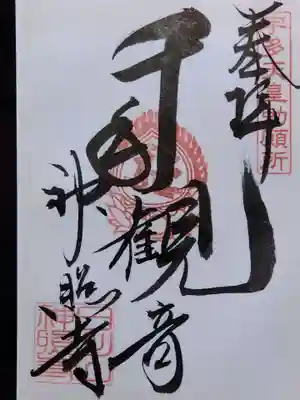 宇多天皇勅願所
奉拝
千手観音
神照寺